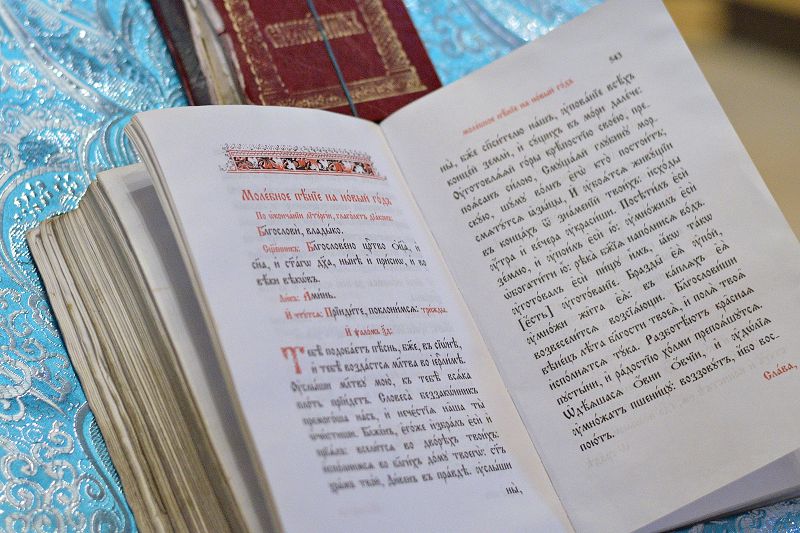 Моле́бное пѣ́нїе на но́вый го́дъ
По ѡ҆кончанїи лїтꙋргі́и, глаго́летъ дїа́конъ:
Благословѝ, влады́ко.
Сщ҃е́нникъ: Бл҃гослове́но црⷭ҇тво ѻ҆ц҃а̀, и҆
сн҃а, и҆ ст҃а́гѡ дх҃а, ны́нѣ и҆ при́снѡ, и҆ во
вѣ́ки вѣкѡ́въ.
Ли́къ: А҆ми́нь.
И҆ чте́тсѧ: Прїиди́те, поклони́мсѧ: три́жды.
И҆ ѱало́мъ ѯ҃д:
Тебѣ̀ подоба́етъ пѣ́снь, бж҃е, въ сїѡ́нѣ,
и҆ тебѣ̀ возда́стсѧ мл҃тва во і҆ерⷭ҇ли́мѣ.
Оу҆слы́ши мл҃твꙋ мою̀, къ тебѣ̀ всѧ́ка
пло́ть прїи́детъ. Словеса̀ беззако́нникъ
премого́ша на́съ, и҆ нечє́стїѧ на̑ша ты̀
ѡ҆чи́стиши. Бл҃же́нъ, є҆го́же и҆збра́лъ є҆сѝ и҆
прїѧ́лъ: всели́тсѧ во дво́рѣхъ твои́хъ.
и҆спо́лнимсѧ во бл҃ги́хъ до́мꙋ твоегѡ̀: ст҃ъ
хра́мъ тво́й, ди́венъ въ пра́вдѣ. Оу҆слы́ши
ны̀,
543
моле́бное пѣ́нїе на но́вый го́дъ
ны̀, бж҃е, сп҃си́телю на́шъ, ᲂу҆пова́нїе всѣ́хъ
концє́й землѝ, и҆ сꙋ́щихъ въ мо́ри дале́че:
Оу҆готовлѧ́ѧй го́ры крѣ́постїю свое́ю, пре-
поѧ́санъ си́лою, Смꙋща́ѧй глꙋбинꙋ̀ мор-
скꙋ́ю, шꙋ́мꙋ во́лнъ є҆гѡ̀ кто̀ постои́тъ;
смѧтꙋ́тсѧ ꙗ҆зы́цы. И҆ ᲂу҆боѧ́тсѧ живꙋ́щїи
въ конца́хъ ѿ зна́менїй твои́хъ: и҆схо́ды
ᲂу҆́тра и҆ ве́чера ᲂу҆краси́ши. Посѣти́лъ є҆сѝ
зе́млю, и҆ ᲂу҆пои́лъ є҆сѝ ю҆̀: ᲂу҆мно́жилъ є҆сѝ
ѡ҆богати́ти ю҆̀: рѣка̀ бж҃їѧ напо́лнисѧ во́дъ
ᲂу҆гото́валъ є҆сѝ пи́щꙋ и҆̀мъ, ꙗ҆́кѡ та́кѡ
[є҆́сть] ᲂу҆гото́ванїе. Бразды̑ є҆ѧ̀ ᲂу҆по́й,
ᲂу҆мно́жи жи̑та є҆ѧ̀: въ ка́плѧхъ є҆ѧ̀
возвесели́тсѧ возсїѧ́ющи. Благослови́ши
вѣне́цъ лѣ́та бл҃гости твоеѧ̀, и҆ полѧ̑ твоѧ̑
и҆спо́лнѧтсѧ тꙋ́ка. Разботѣ́ютъ кра̑снаѧ
пꙋсты́ни, и҆ ра́достїю хо́лми препоѧ́шꙋтсѧ.
Ѡ҆дѣ́ѧшасѧ ѻ҆внѝ ѻ҆́вчїи, и҆ ᲂу҆дѡ́лїѧ
ᲂу҆мно́жатъ пшени́цꙋ: воззовꙋ́тъ, и҆́бо вос-
пою́тъ.
Сла́ва,